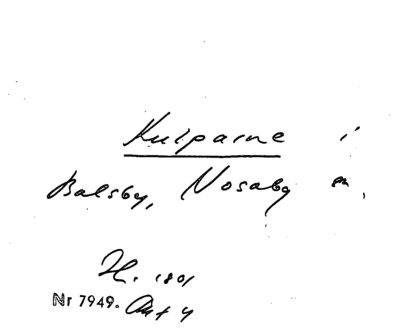 Kulparne i
Balsby, Nosaby sn,
H. 1801
Nr 7949.